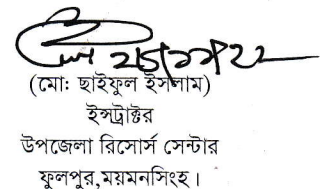 ২১/১১/২২
(মো: ছাইফুল ইসলাম)
ইন্সট্রাক্টর
উপজেলা রিসোর্স সেন্টার
ফুলপুর,ময়মনসিংহ।